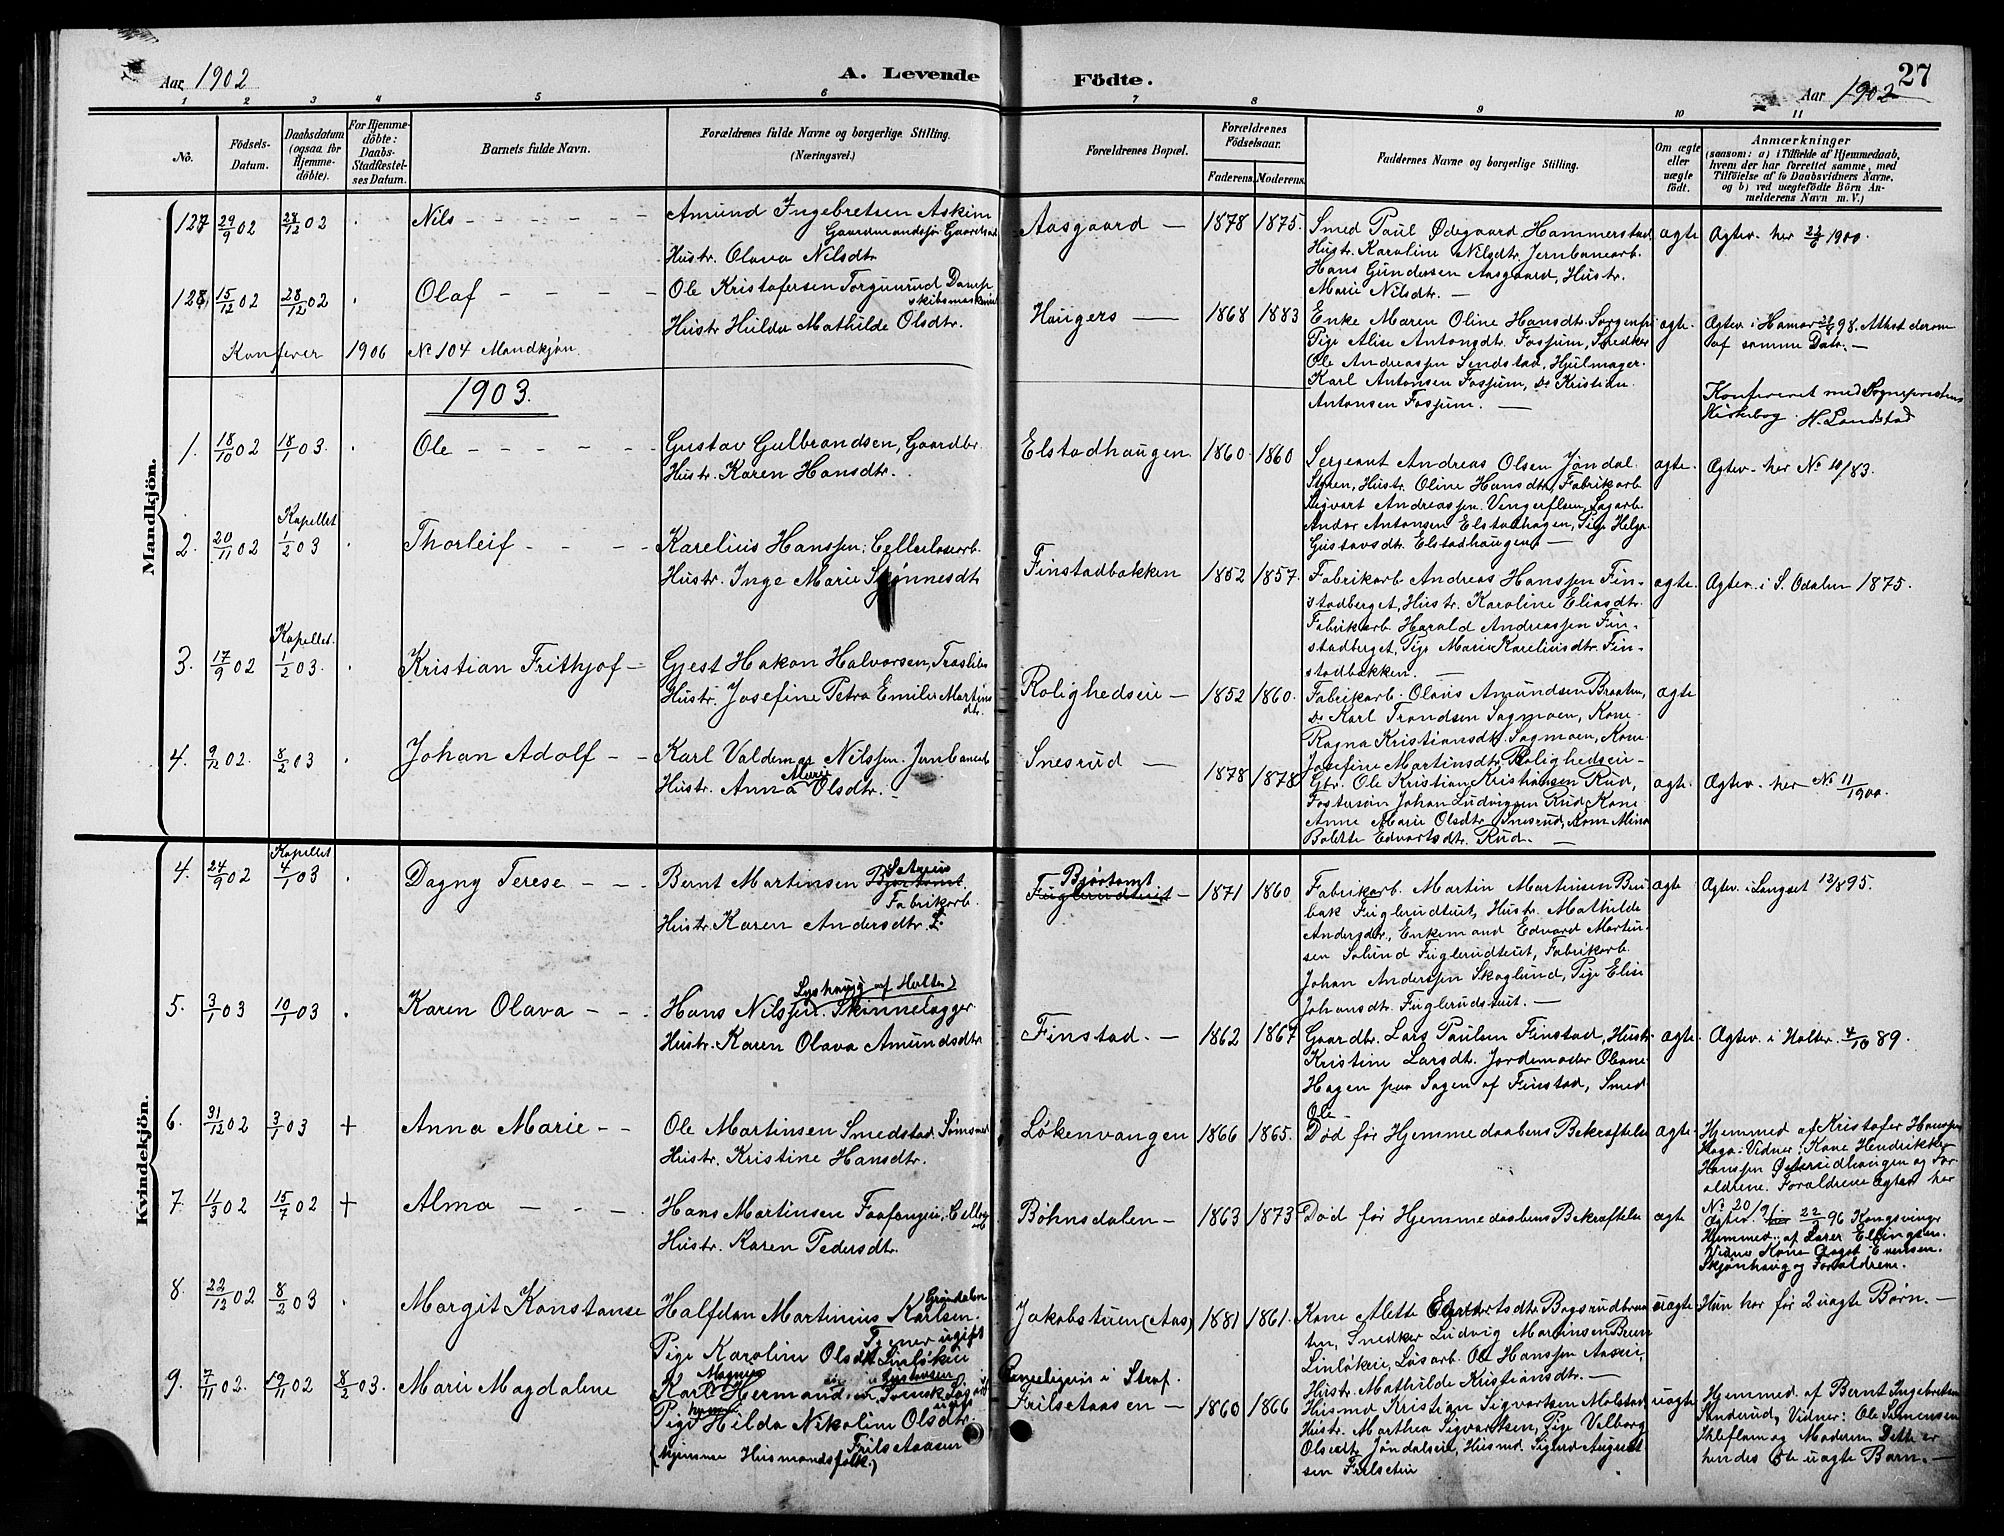 Aar 1902
A. Levende
Födte.
27
Aar 1902
1 2 3 4 5 6 7 8 9 10 11
No.
Födsels-Datum.
Daabsdatum (ogsaa for Hjemmedöbte).
For Hjemmedöbte: Daabs-Stadfæstelses Datum.
Barnets fulde Navn.
Forældrenes fulde Navne og borgerlige Stilling. (Næringsvei.)
Forældrenes Bopæl.
Forældrenes Födselsaar.
Faderens. Moderens.
Faddernes Navne og borgerlige Stilling.
Om ægte eller uægte födt.
Anmærkninger
(saasom: a) i Tilfælde af Hjemmedaab, hvem der har forrettet samme, med Tilföielse af to Daabsvidners Navne, og b) ved uægtefödte Börn Anmelderens Navn m. V.)
Mandkjön.
127 29/9 02 28/12 02 Nils
Amund Ingebretsen Askim
Hustr. Olava Nilsdtr
Aasgaard 1878 1875.
Smed Paul Ødegaard Hammerstad
Hustr. Karoline Nilsdtr, Jernbanearb.
Hans Gundersen Aasgaard, Hustr.
Marie Nilsdtr.
ægte Ægtev. her 1900.
128, 15/12 02 28/12 02 Olaf
Ole Kristofersen Torgunrud Damp
skibsmaskinist
Hustr Hulda Mathilde Olsdtr.
Haugers 1868 1883
Enke Maren Oline Hansdtr. Sorgenfri
Pige Alise Antonsdtr. Fossum, Snedker
Ole Andreassen Sendstad, Hjulmager
Karl Antonsen Fossum, Do Kristian
Antonsen Fossum.
ægte Ægtev. i Hamar 98. Attest derom
af samme Dato.
Konfever 1906 No 104 Mandkjøn.
Konfereret med Sogneprestens
Kirkebog. H. Landstad
1903.
1. 18/10 02 18/1 03. Ole
Gustav Gulbrandsen, Gaardbr.
Hustr. Karen Hansdtr.
Elstadhaugen 1860. 1860
Sergeant Andreas Olsen Jøndal
Styren, Hustr. Oline Hansdtr, Fabrikarb
Sigvart Andreassen Vengerflsen, Sagarb
Andor Antonsen Elstadhagen, Pige Helga
Gustavsdtr. Elstadhaugen
ægte. Ægtev. her No 10/83.
2. 20/11 02 Kapellet 1/2 03 Thorleif
Karelius Hanssen, Cellulosearb.
Hustr. Inge Marie Sjønnesdtr
Finstadbakken 1852 1857.
Fabrikarb Andreas Hanssen Fin-
stadberget, Hustr. Karoline Eliasdtr.
Fabrikarb. Harald Andreassen Fin-
stadberget, Pige Marie Kareliusdtr. Fin-
stadbakken.
ægte. Ægtev. i S. Odalen 1875.
3. 17/9 02 Kapellet. 1/2 03. Kristian Frithjof
Gjest Hakon Halvorsen, Træsliber
Hustr. Josefine Petra Emilie Martins
dtr.
Rolighedseie 1852 1860.
Fabrikarb. Olaus Amundsen Braaten,
Do Karl Trondsen Sagmoen, Kone
Ragna Kristiansdtr. Sagmoen, Kone
Josefine Martinsdtr. Rolighedseie
ægte
4. 9/12 02. 8/2 03 Johan Adolf
Karl Valdemar Nilssen. Jernbanearb
Hustr. Anna Marie Olsdtr.
Snesrud 1878 1878
Gbr. Ole Kristian Kristiansen Rud,
Fostersøn Johan Ludvigsen Rud, Kone
Anne Marie Olsdtr Snesrud, Kone Mina
Bolette Edvartsdtr. Rud.
ægte. Ægtev. her No 11/1900.
Kvindekjön.
4. 24/9 02 Kapellet 4/1 03 Dagny Terese
Bernt Martinsen
Fabrikarb.
Hustr. Karen Andersdtr.
Bjørtomt
Fuglerudteiet 1871 1860
Fabrikarb. Martin Martinsen Bru
bak Fuglerudteiet, Hustr. Mathilde
Andersdtr, Enkemand Edvard Martin-
sen Solund Fuglerudteiet, Fabrikarb.
Johan Anderssen Skoglund, Pige Elise
Johansdtr. Fuglerudsteiet.
ægte Ægtev. i Langset 1895.
5. 3/1 03 10/1 03 Karen Olava
Lyshaug af Holter)
Hans Nilssen. Skinnelægger
Hustr. Karen Olava Amundsdtr
Finstad. 1862 1867
Gaardbr. Lars Paulsen Finstad, Hustr.
Kristine Larsdtr. Jordemoder Oleane
Hagen paa Sagen af Finstad, Smed
Ole
ægte Ægtev. i Holter. 4/10 89.
6. 31/12 02 3/1 03 + Anna Marie
Ole Martinsen Smedstad. Tømmer
Hustr. Kristine Hansdtr.
Løkenvangen 1866 1865.
Død før Hjemmedaabens Bekræftelse
ægte Hjemmed. af Kristofer Hanssen
Haga. Vidner: Kone Hendrikke
Hanssen Østerudhaugen og For
ældrene. Forældrene ægtev. her
No 20/91.
7. 11/3 02 15/7 02 + Alma
Hans Martinsen Faafangeie, Cellulosearb
Hustr. Karen Pedersdtr.
Bøhnsdalen 1863 1873
Død før Hjemmedaabens Bekræftelse
ægte Ægtev. 96 Kongsvinger
Hjemmed. af Lærer Ellingsen.
Vidner Kone Dagot Evensen.
Skjønhaug og Forældrene.
8. 22/12 02 8/2 03 Margit Konstanse
Halfdan Martinius Karlsen.
Grindalen
Tjener ugift
Pige Karoline Olsdtr Linløkeie
Jakobstuen (Aas) 1881 1861.
Kone Alette Edvartsdtr. Bogsrudbraa
ten, Snedker Ludvig Martinsen Breen
Linløkeie, Løsarb. Ole Hanssen Aaseie,
Hustr. Mathilde Kristiansdtr.
uægte Hun har før 2 uægte Børn.
9. 7/11 02. 19/11 02 8/2 03. Marie Magdalene
Magnus
Karl Hermand
Pige Hilda Nikoline Olsdtr.
(hjemme Husmandsfolk.) Frilsetaasen
Frilsetaasen 1860 1866
Husmd Kristian Sigvartsen Molstad,
Hustr. Marthea Sigvartsen, Pige Valborg
Olsdtr Jøndalseie, Husmd. Sigurd August
sen Frilseteie
uægte Hjemmed. af Bernt Ingebretsen
Sanderud, Vidner: Ole Simensen
og Moderen Dette er
hendes 6te uægte Barn.